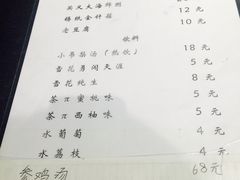 12元
锡纸金针菇 10元
老豆腐 8元
饮料
小吊梨汤(热饮) 18元
雪花勇闯天涯 5元
雪花纯生 8元
茶π蜜桃味 5元
茶π西柚味 5元
水葡萄 4元
水荔枝 4元
参鸡汤 68元